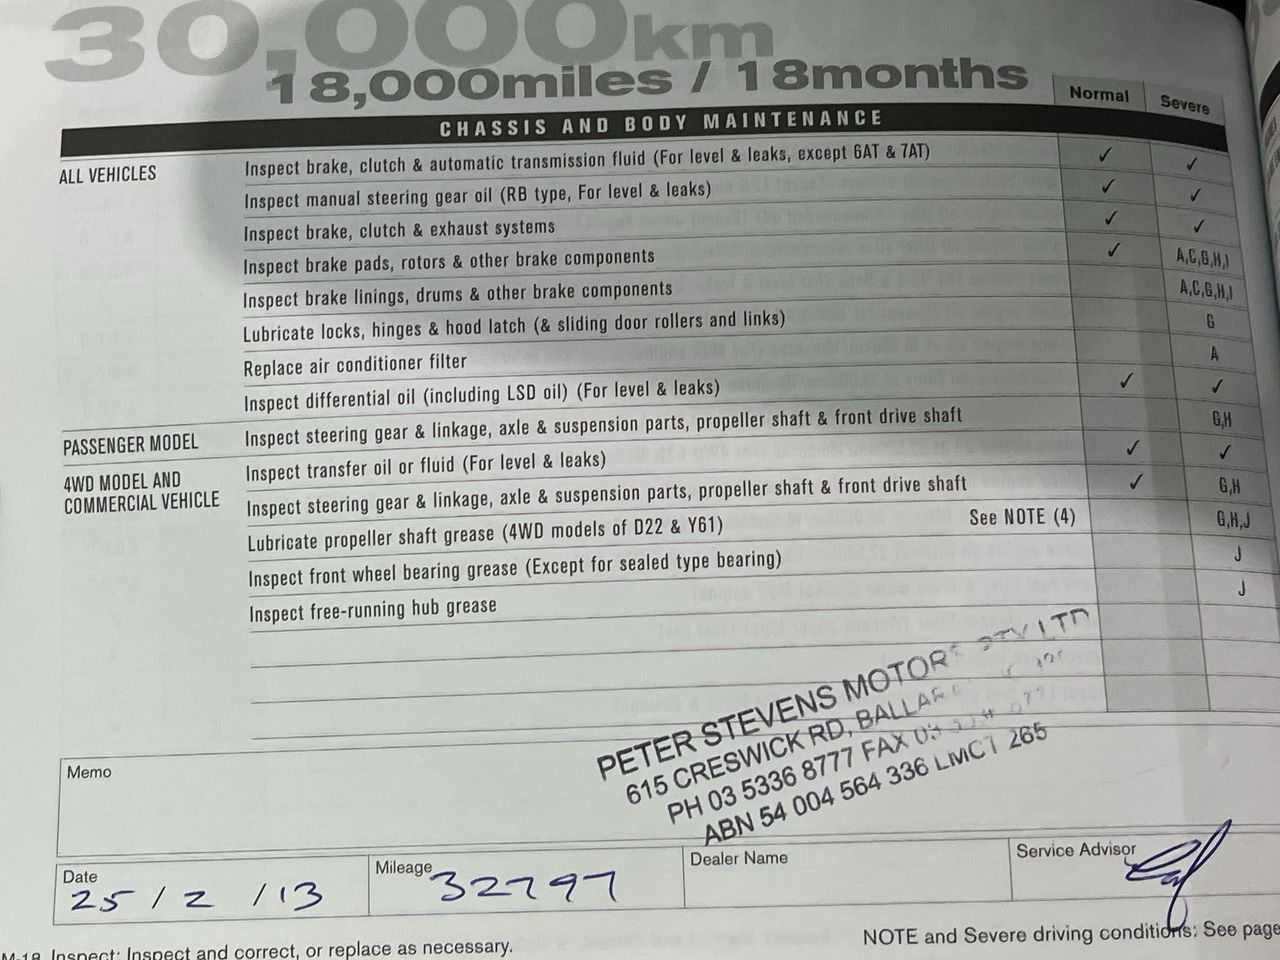 30,000km
18,000miles / 18months
Normal Severe
CHASSIS AND BODY MAINTENANCE
ALL VEHICLES Inspect brake, clutch & automatic transmission fluid (For level & leaks, except 6AT & 7AT) ✓ ✓
Inspect manual steering gear oil (RB type, For level & leaks) ✓ ✓
Inspect brake, clutch & exhaust systems ✓ ✓
Inspect brake pads, rotors & other brake components ✓ A,C,G,H,I
Inspect brake linings, drums & other brake components A,C,G,H,I
Lubricate locks, hinges & hood latch (& sliding door rollers and links) G
Replace air conditioner filter A
Inspect differential oil (including LSD oil) (For level & leaks) ✓ ✓
PASSENGER MODEL Inspect steering gear & linkage, axle & suspension parts, propeller shaft & front drive shaft G,H
4WD MODEL AND COMMERCIAL VEHICLE Inspect transfer oil or fluid (For level & leaks) ✓ ✓
Inspect steering gear & linkage, axle & suspension parts, propeller shaft & front drive shaft ✓ G,H
Lubricate propeller shaft grease (4WD models of D22 & Y61) See NOTE (4) G,H,J
Inspect front wheel bearing grease (Except for sealed type bearing) J
Inspect free-running hub grease J
PETER STEVENS MOTORS PTY LTD
615 CRESWICK RD,
PH 03 5336 8777 FAX 03
ABN 54 004 564 336 LMCT 265
Memo
Date 25/2/13
Mileage 32797
Dealer Name
Service Advisor
NOTE and Severe driving conditions: See page
M-18 Inspect: Inspect and correct, or replace as necessary.